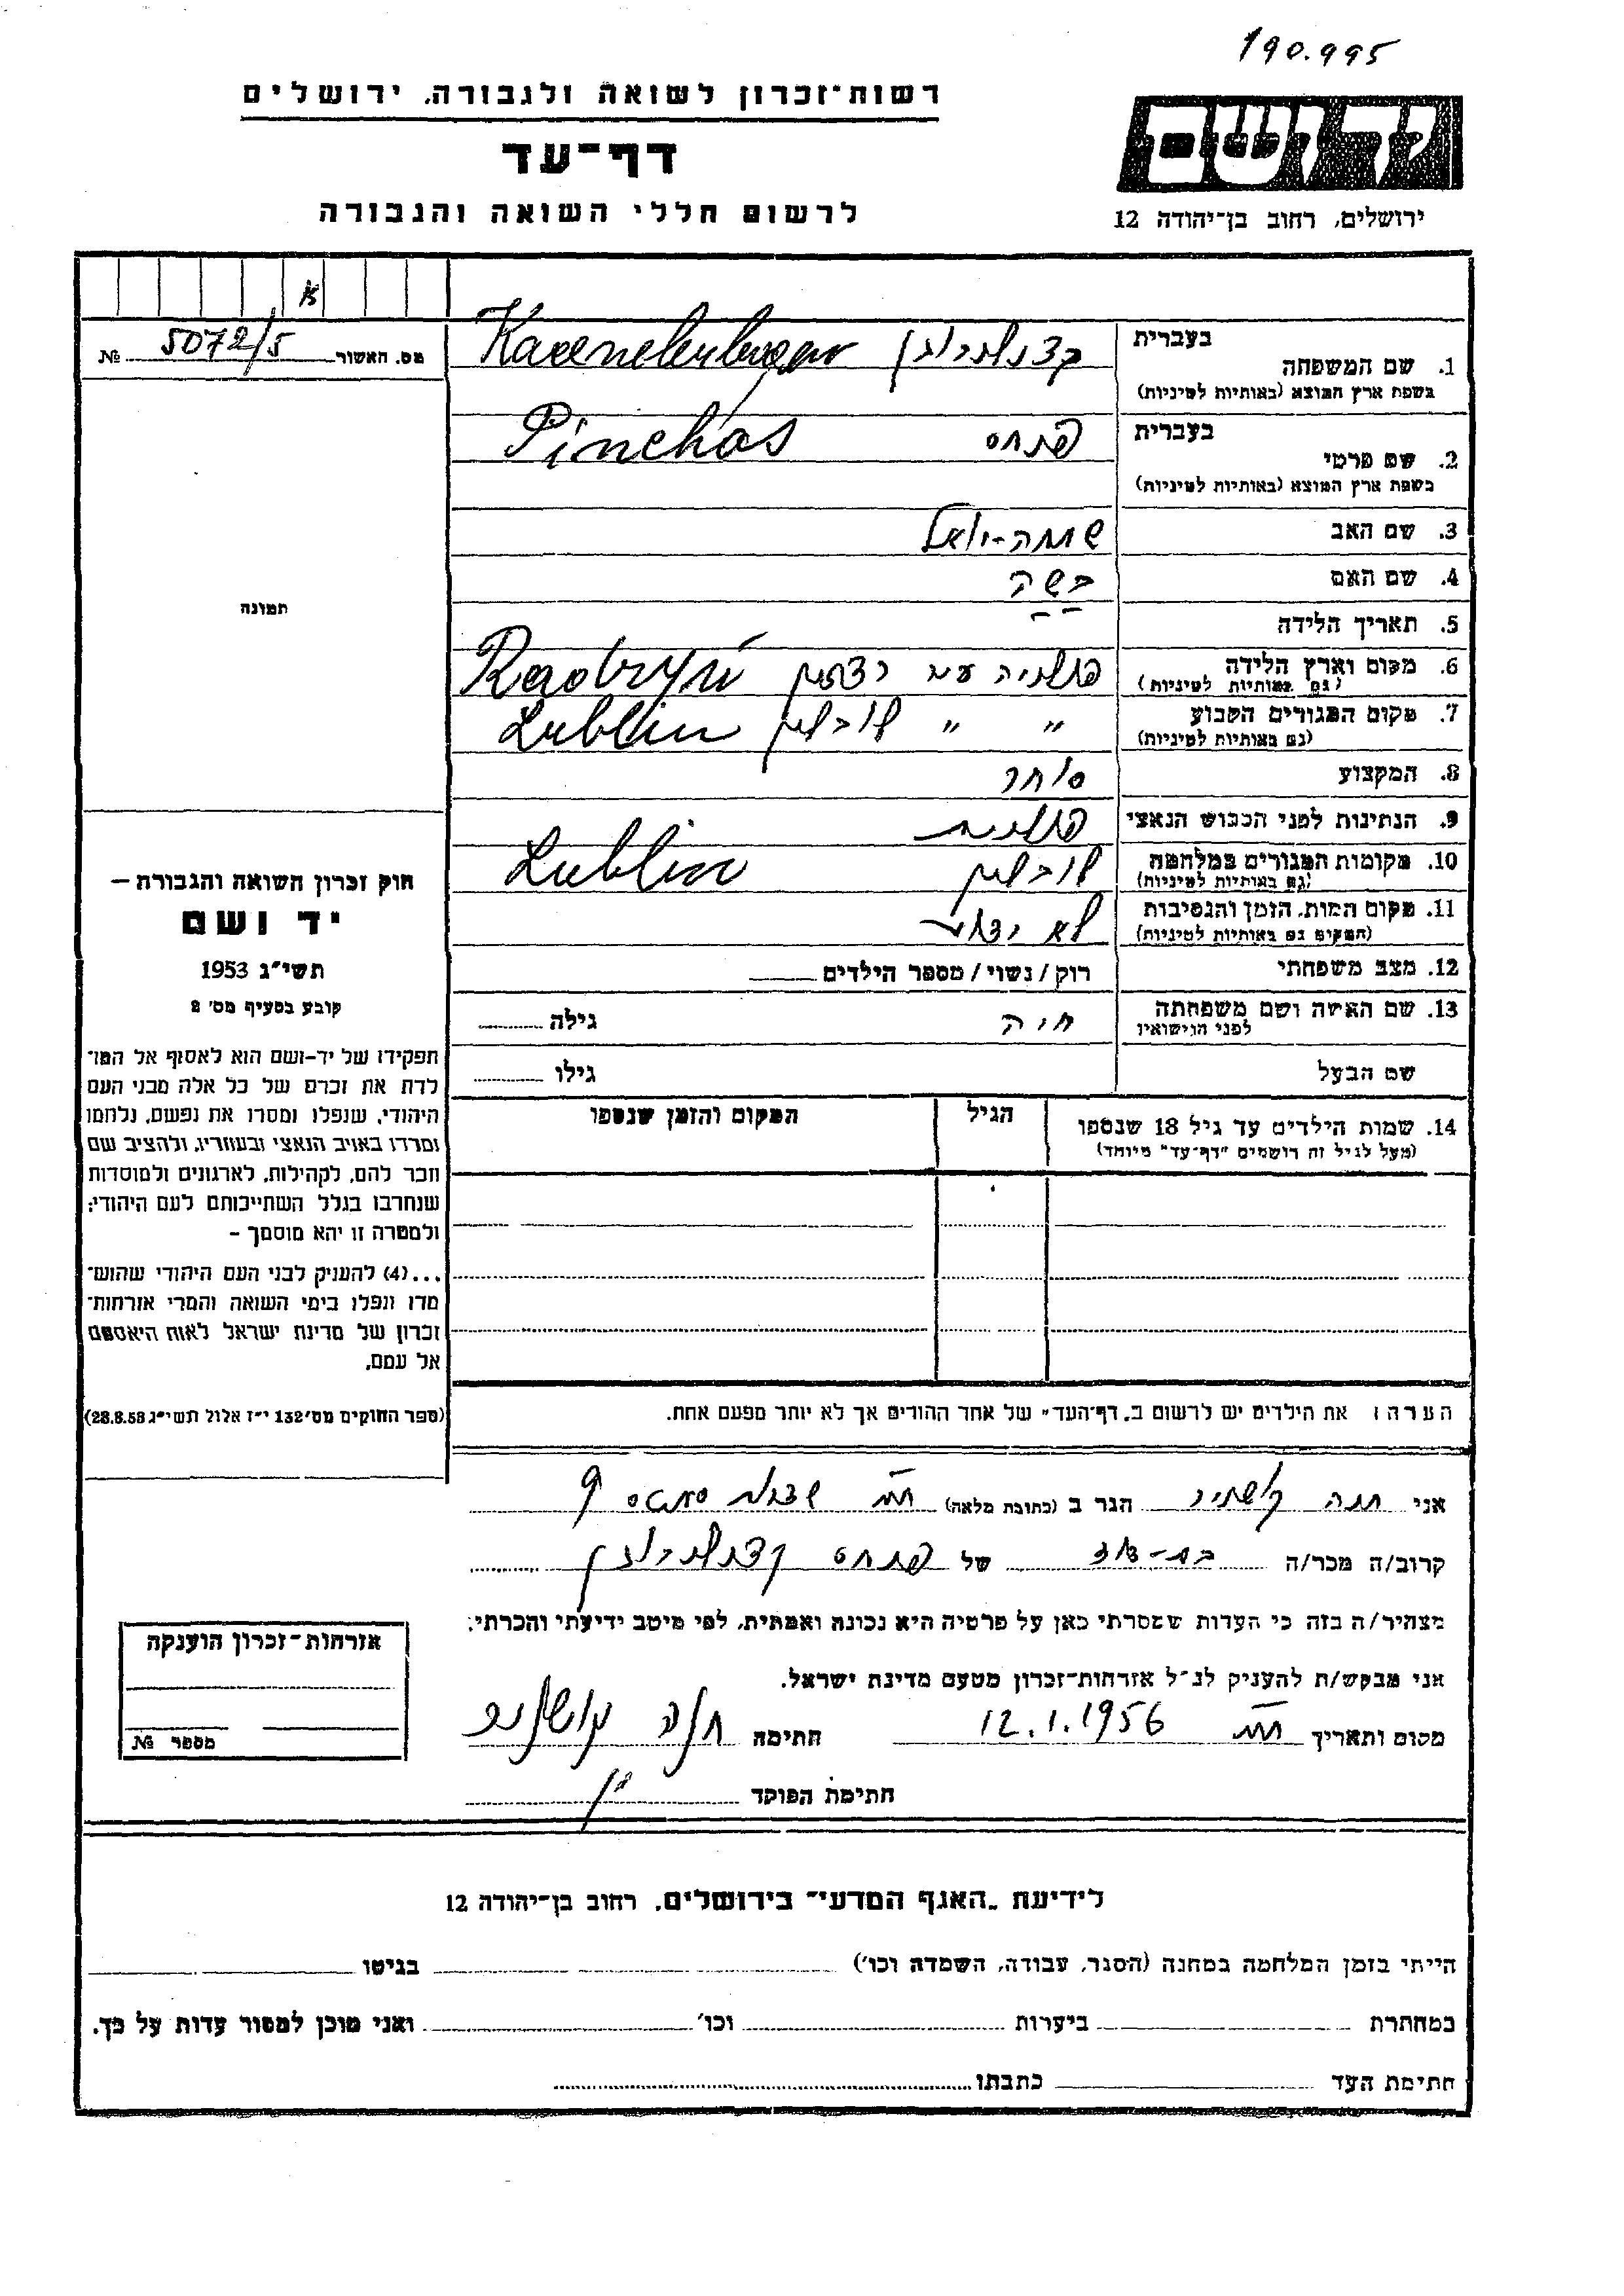 190.995
רשות־זכרון לשואה ולגבורה, ירושלים
דף־עד
לרשום חללי השואה והגבורה
יד ושם
ירושלים, רחוב בן־יהודה 12
א
מס. האשור 5072/5 №
תמונה
חוק זכרון השואה והגבורה –
יד ושם
תשי״ג 1953
קובע בסעיף מס׳ 2
תפקידו של יד-ושם הוא לאסוף אל המו־
לדת את זכרם של כל אלה מבני העם
היהודי, שנפלו ומסרו את נפשם, נלחמו
ומרדו באויב הנאצי ובעוזריו, ולהציב שם
וזכר להם, לקהילות, לארגונים ולמוסדות
שנחרבו בגלל השתייכותם לעם היהודי;
ולמטרה זו יהא מוסמך –
...(4) להעניק לבני העם היהודי שהוש־
מדו ונפלו בימי השואה והמרי אזרחות־
זכרון של מדינת ישראל לאות היאספם
אל עמם.
(ספר החוקים מס׳ 132 י״ז אלול תשי״ג 28.8.53)
בעברית
1. שם המשפחה
בשפת ארץ המוצא (באותיות לטיניות)
בעברית
2. שם פרטי פנחס Pinchas
בשפת ארץ המוצא (באותיות לטיניות)
3. שם האב שמחה-יואל
4. שם האם בשה
5. תאריך הלידה - -
6. מקום וארץ הלידה
(גם באותיות לטיניות)
7. מקום המגורים הקבוע " " לובלין Lublin
(גם באותיות לטיניות)
8. המקצוע סוחר
9. הנתינות לפני הכבוש הנאצי פולנית
10. מקומות המגורים במלחמה לובלין Lublin
(גם באותיות לטיניות)
11. מקום המות, הזמן והנסיבות לא ידוע
(המקום גם באותיות לטיניות)
12. מצב משפחתי רוק / נשוי / מספר הילדים
13. שם האישה ושם משפחתה חיה גילה
לפני הנישואין
שם הבעל גילו
14. שמות הילדים עד גיל 18 שנספו הגיל המקום והזמן שנספו
(מעל לגיל זה רושמים "דף־עד" מיוחד)
הערה: את הילדים יש לרשום ב„דף־העד" של אחד ההורים אך לא יותר מפעם אחת.
אני חנה הגר ב (כתובת מלאה) 9
קרוב/ה מכר/ה בת-דוד של פנחס
מצהיר/ה בזה כי העדות שמסרתי כאן על פרטיה היא נכונה ואמתית, לפי מיטב ידיעתי והכרתי.
אני מבקש/ת להעניק לנ״ל אזרחות־זכרון מטעם מדינת ישראל.
מקום ותאריך 12.1.1956 חתימה חנה
חתימת הפוקד
אזרחות־זכרון הוענקה
מספר №
לידיעת „האגף המדעי״ בירושלים, רחוב בן־יהודה 12
הייתי בזמן המלחמה במחנה (הסגר, עבודה, השמדה וכו׳) בגיטו
במחתרת ביערות וכו׳ ואני מוכן למסור עדות על כך.
חתימת העד כתבתו